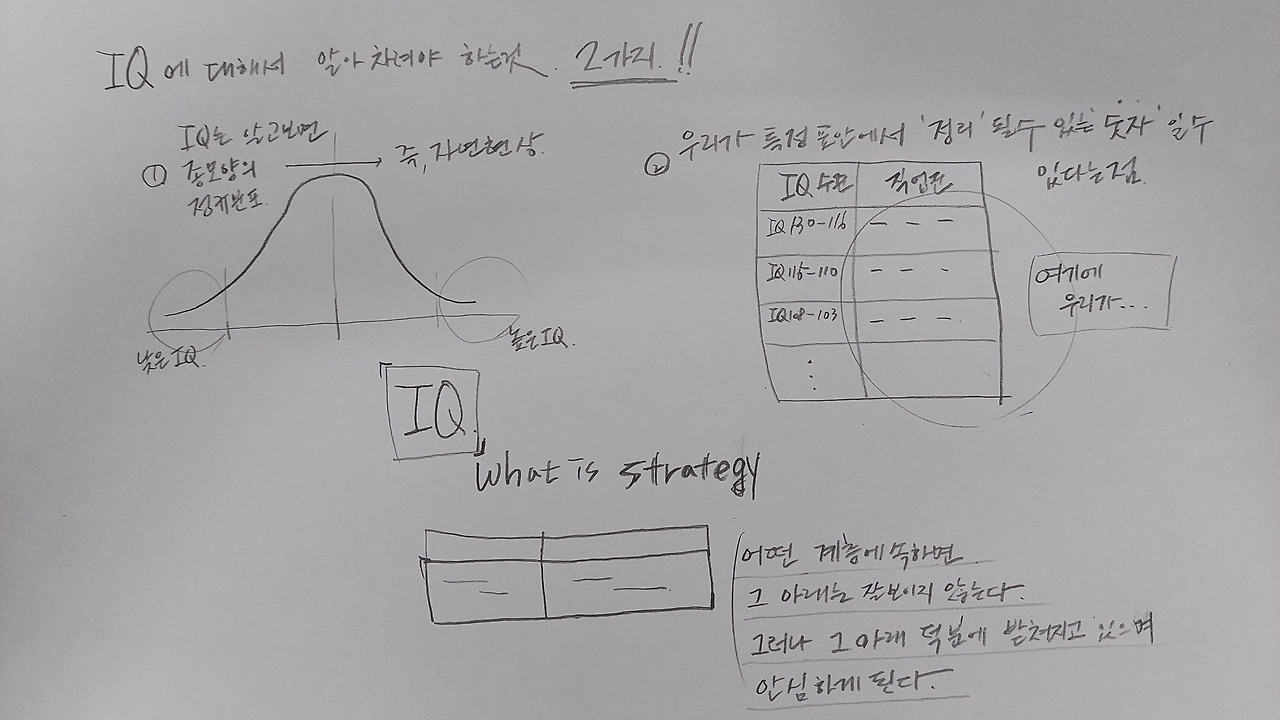 IQ에 대해서 알아차려야 하는것. 2가지.!!
IQ는 알고보면
① 종모양의
정규분포.
즉, 자연현상.
낮은 IQ.
높은 IQ.
② 우리가 특정 표안에서 '정리' 될수 있는 '숫자' 일수
있다는 점.
IQ 수준 직업군
IQ 130-116
IQ 115-110
IQ 108-103
여기에
우리가...
IQ.
What is strategy
어떤 계층에 속하면
그 아래는 잘보이지 않는다.
그러나 그 아래 덕분에 받쳐지고 있으며
안심하게 된다.